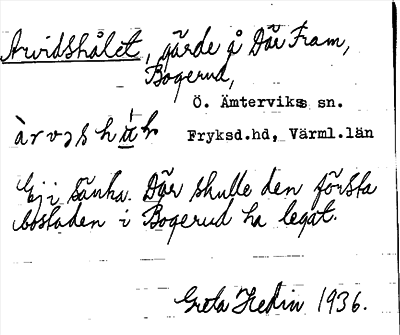 Arvidshålet, gärde å Där Fram,
Bogerud,
Ö. Ämterviks sn.
Fryksd.hd, Värml.län
Ej i sänka. Där skulle den första
bostaden i Bogerud ha legat.
Greta Hedin 1936.